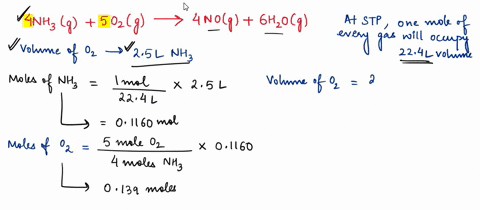 ✓4NH₃(g) + 5O₂(g) ⟶ 4NO(g) + 6H₂O(g)
At STP, one mole of
every gas will occupy
22.4L volume
✓Volume of O₂ → ✓2.5L NH₃
Moles of NH₃ = 1mol / 22.4L × 2.5L
Volume of O₂ = 2
↳ = 0.1160 mol
Moles of O₂ = 5 mole O₂ / 4 moles NH₃ × 0.1160
↳ 0.139 moles